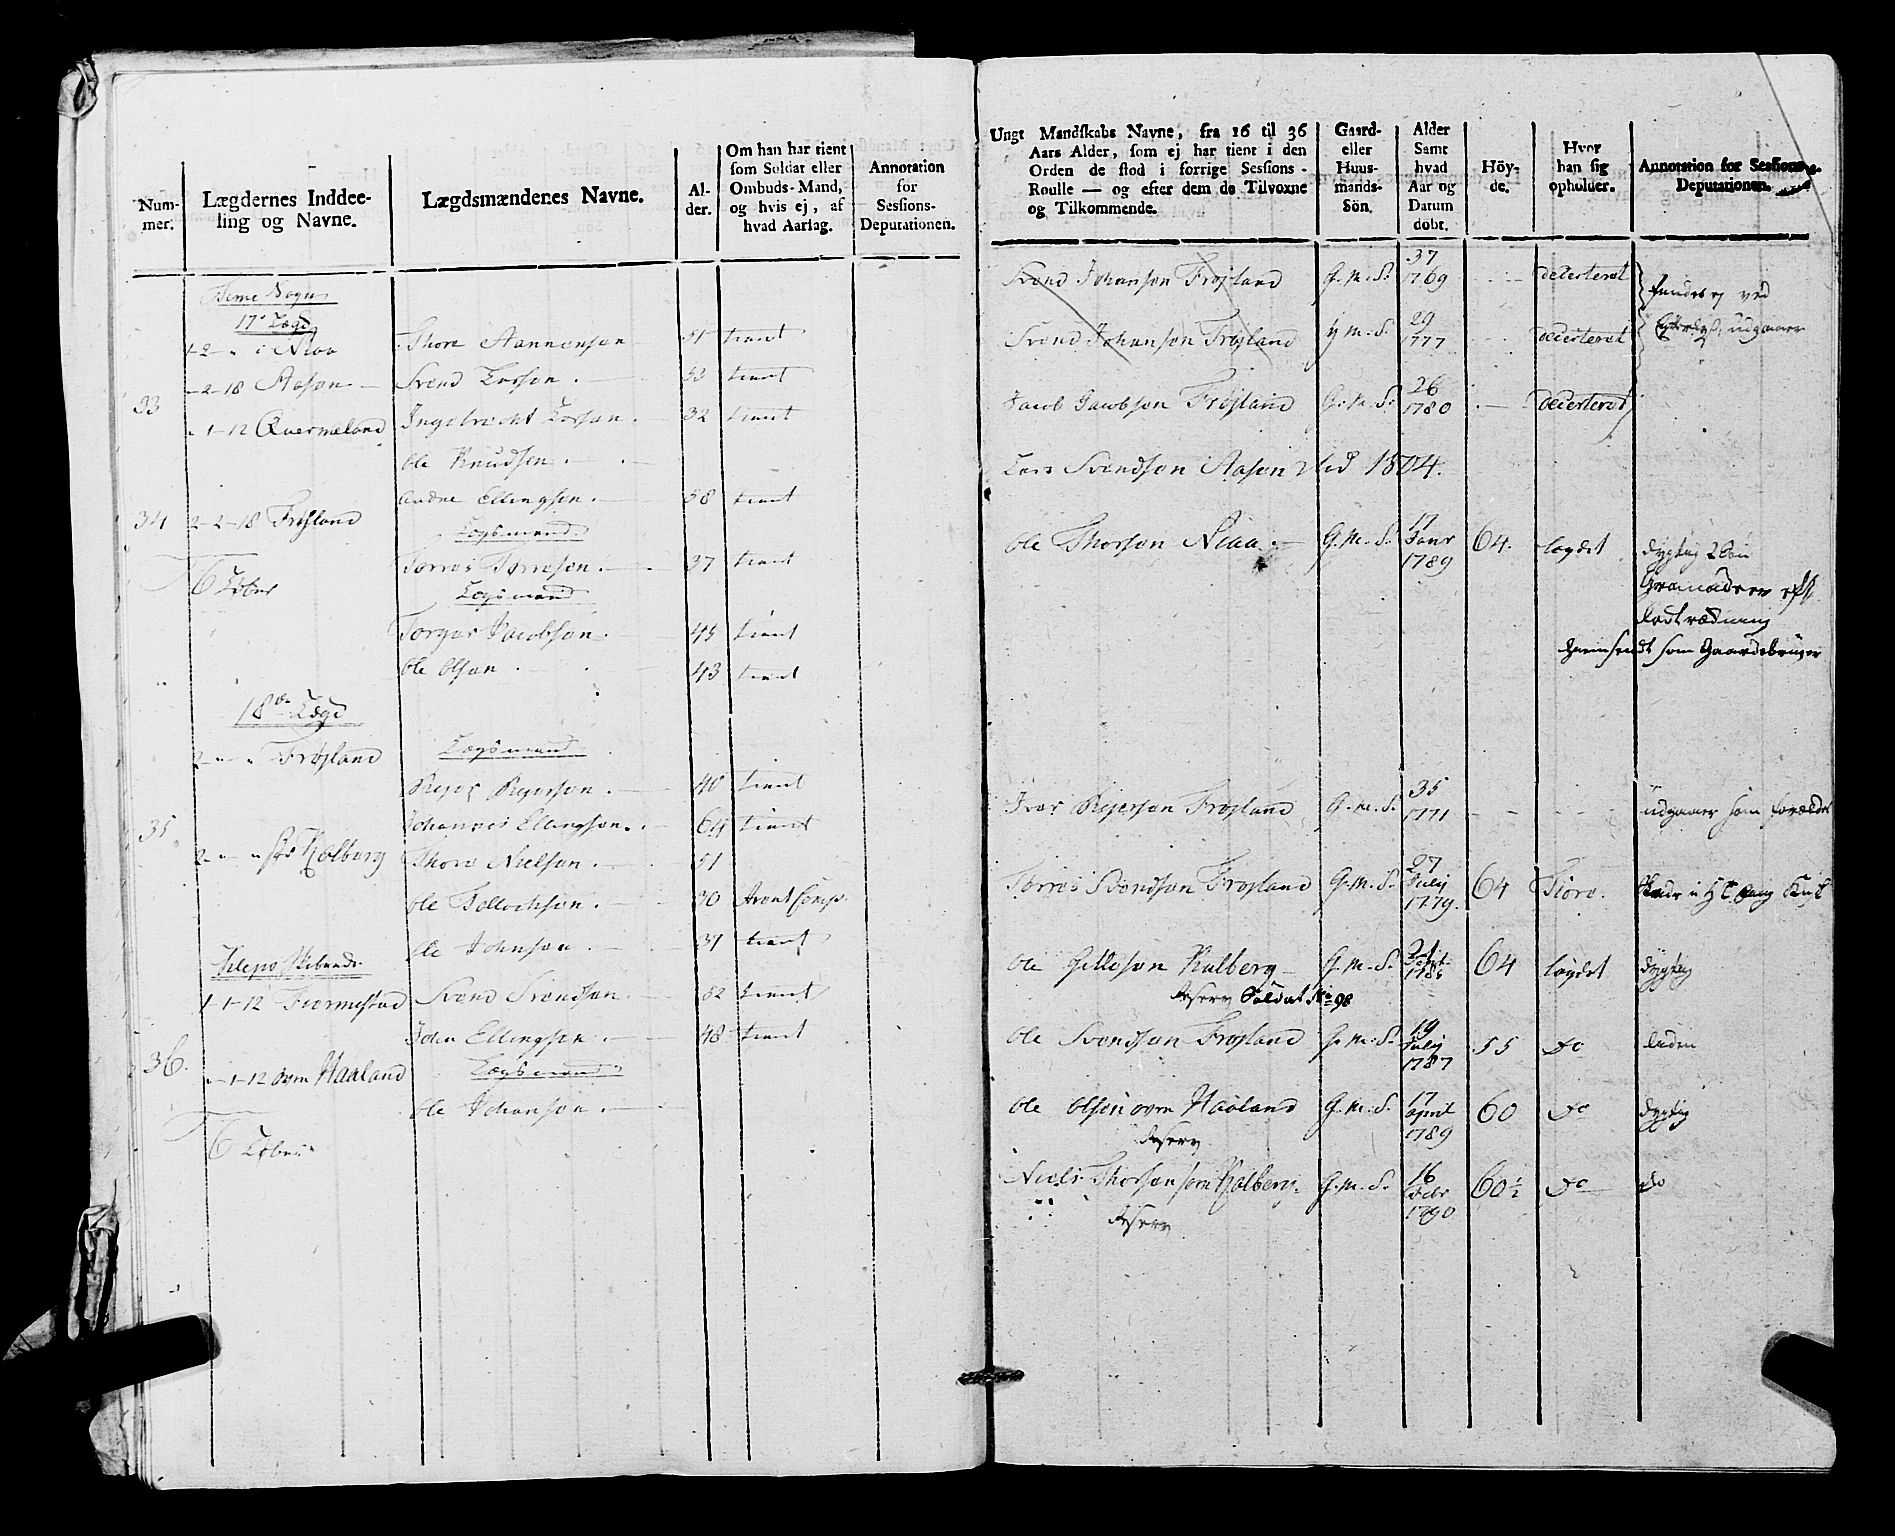 Num-
mer.
Lægdernes Inddee-
ling og Navne.
Lægdsmændenes Navne.
Al-
der.
Om han har tient
som Soldat eller
Ombuds-Mand,
og hvis ej, af
hvad Aarsag.
Annotation
for
Sessions-
Deputationen.
Time Sogn
17de Lægd
1-2 - i Niaa Thore Aanonsen 51 tient
-2-18 Aasen Svend Larsen 53 tient
33
1-12 Qvermeland Ingebrecht Larsen 32 tient
Ole Knudsen
Andre Ellingsen 58 tient
34 2-2-18 Frøyland
Lægsmand
Torres Torresen 37 tient
6 Løber
Lægsmand
Torger Jacobsen 45 tient
Ole Olsen 43 tient
18de Lægd
2 Frøyland
Lægsmand
Rejer Rejersen 40 tient
Johannes Ellingsen 64 tient
35
2 Kolberg Thore Nielsen 51
Ole Tollochsen 30
Ole Johnsen 34 tient
Klepp Skibrede
1-1-12 Svend Svendsen 52 tient
John Ellingsen 48 tient
36.
1-12 Haaland
Lægsmand
Ole Johansen
6 Løber
Ungt Mandskabs Navne, fra 16 til 36
Aars Alder, som ej har tient i den
Orden de stod i forrige Sessions-
Roulle — og efter dem de Tilvoxne
og Tilkommende.
Gaard-
eller
Huus-
mands-
Sön.
Alder
Samt
hvad
Aar og
Datum
döbt.
Höy-
de.
Hvor
han sig
opholder.
Annotation for Sessions-
Deputationen.
Svend Johansen Frøyland G. M. S. 37 1769 deserteret
findes ej ved
Svend Johansen Frøyland G. M. S. 29 1777 deserteret
udgaaer
Jacob Jacobsen Frøyland G. M. S. 26 1780 deserteret
Lars Svendsen Aasen død 1804.
Ole Thorsen Niaa G. M. S. 17 Janr 1789 64. lægdet dygtig
efter
Lodtrædning
hiemsendt som Gaardebruger
Iver Rejersen Frøyland G. M. S. 35 1771 udgaaer som forældet
Torres Svendsen Frøyland G. M. S. 27 July 1779. 64
Ole Kalberg G. M. S. 64 lægdet dygtig
Reserv Soldat No 98
Ole Svendsen Frøyland G. M. S. 19 July 1787 55 Do liden
Ole Olsen Haaland G. M. S. 17 April 1789 60 Do dygtig
Reserv
Niels Thorsen Kolberg G. M. S. 16 Febr 1790 60½ Do do
Reserv